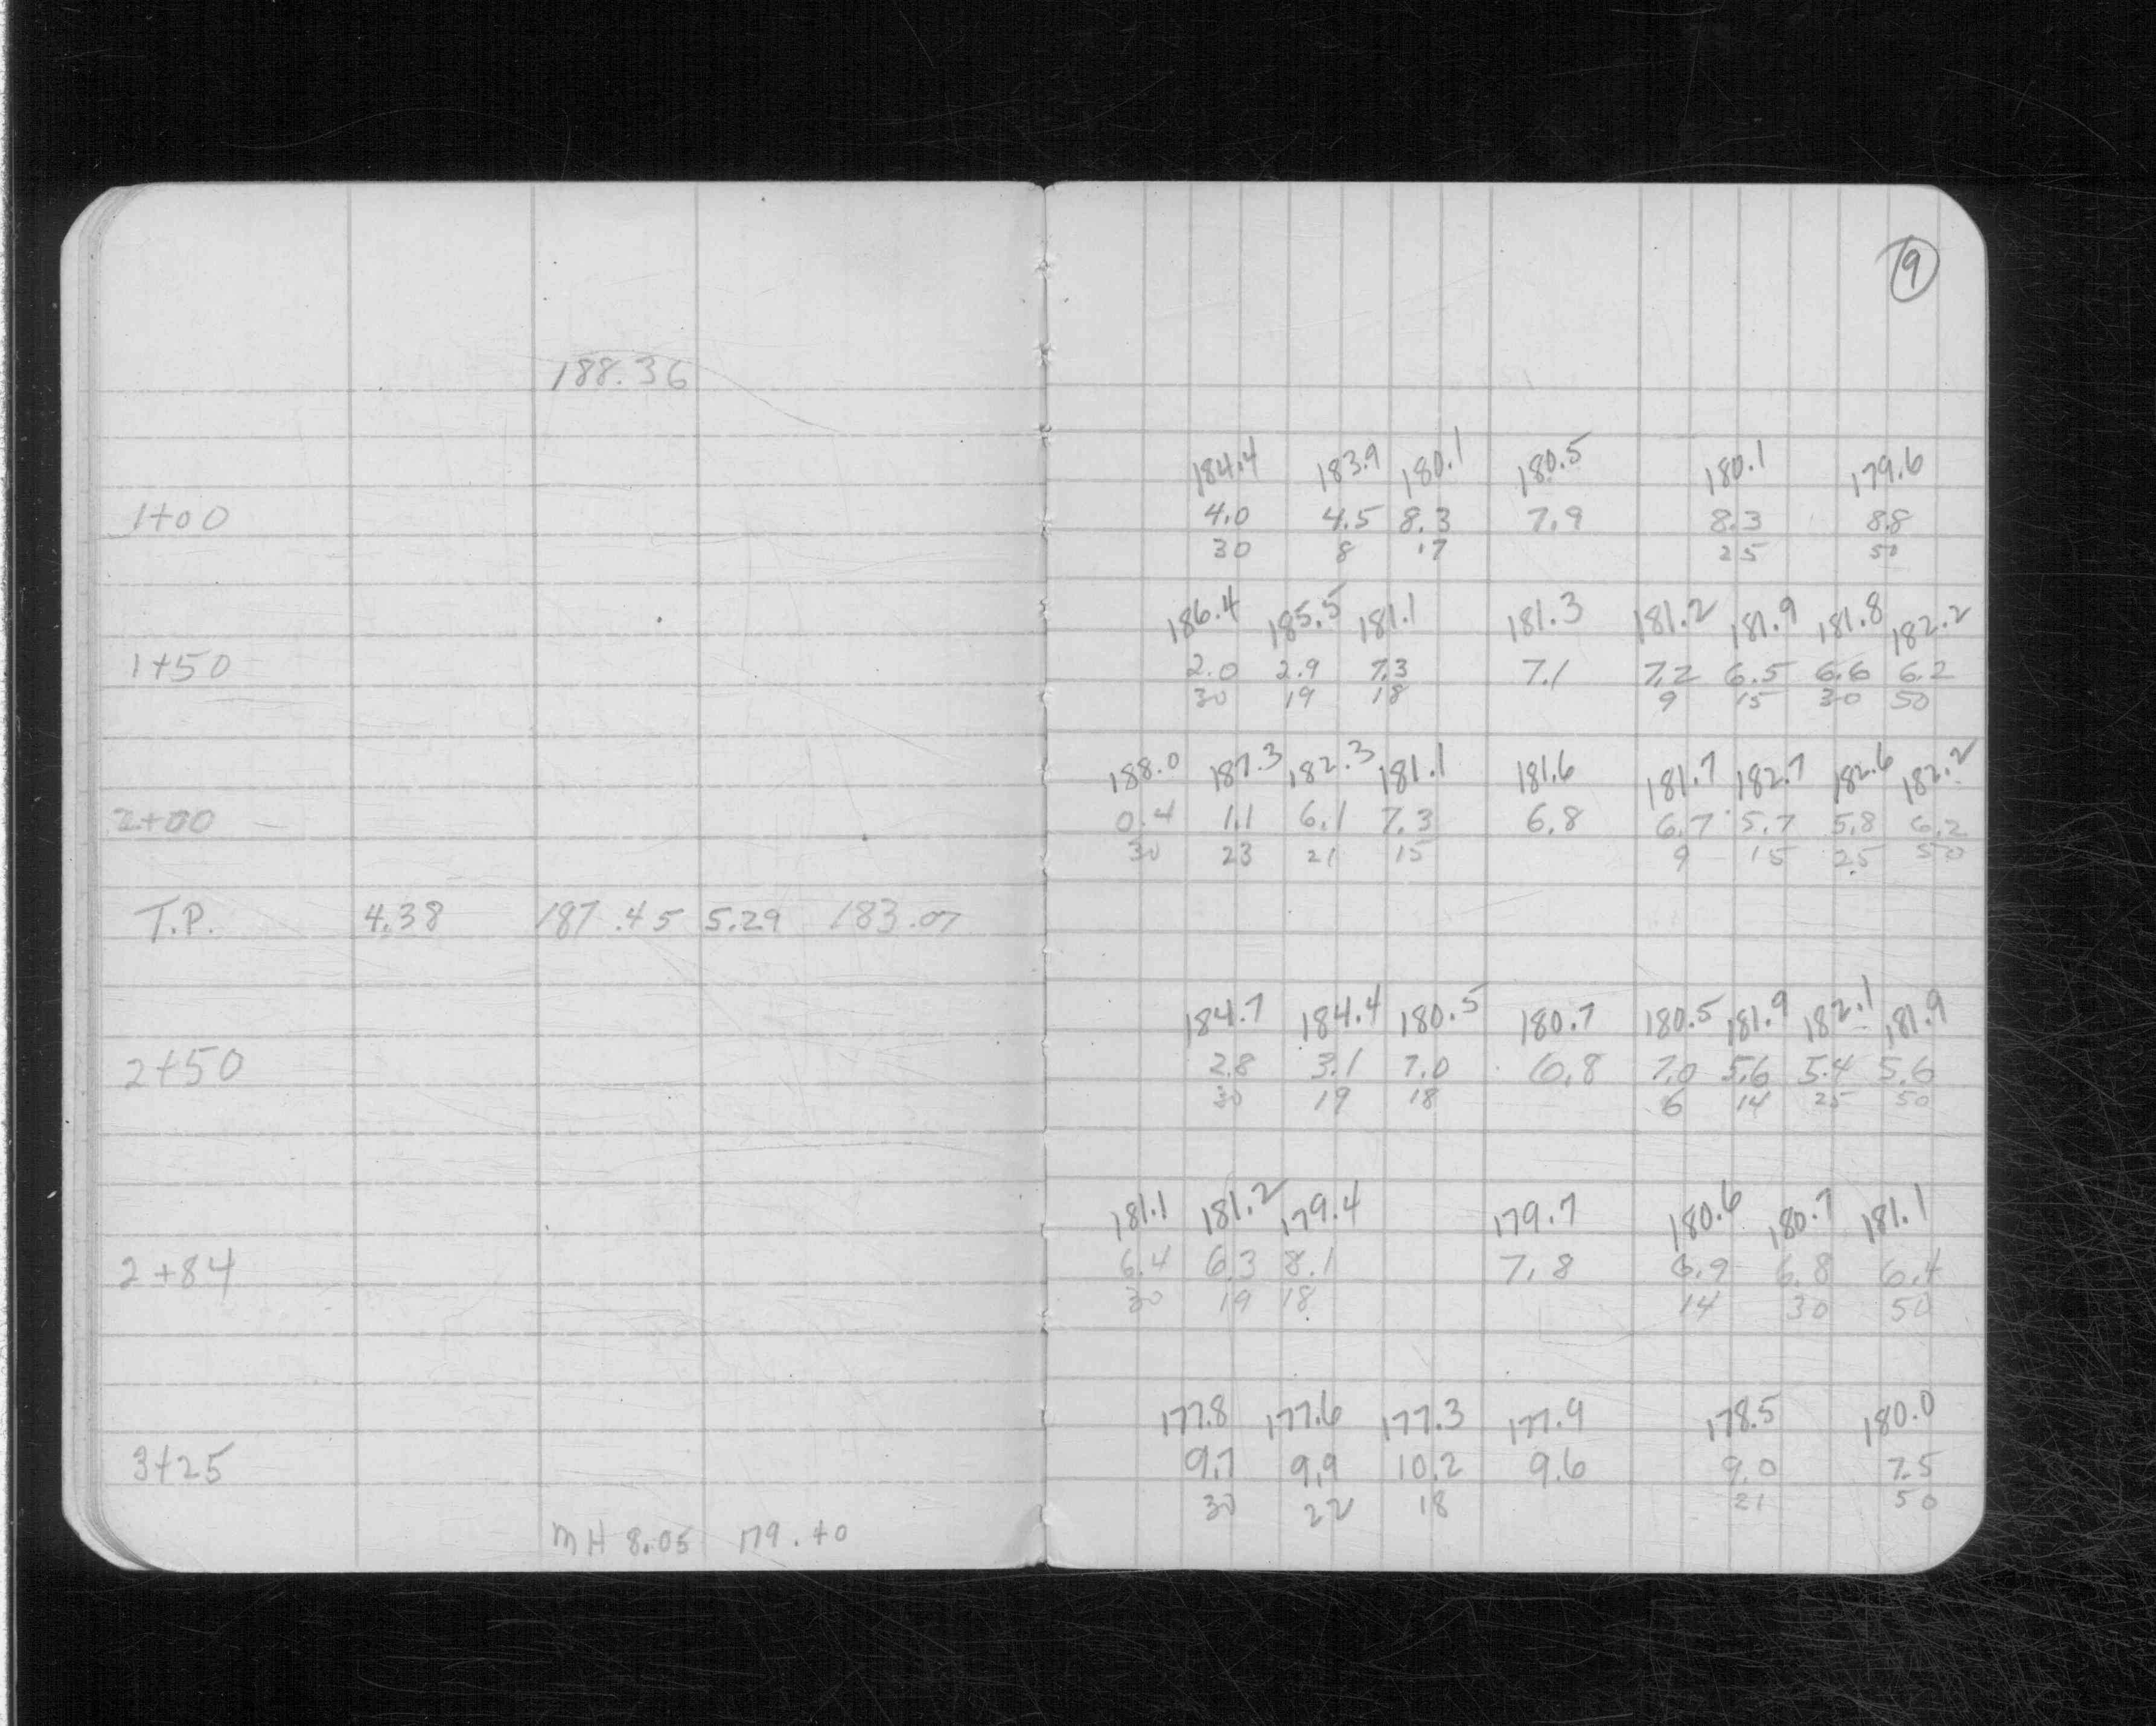 9
188.36
184.4 183.9 180.1 180.5 180.1 179.6
1+00 4.0 4.5 8.3 7.9 8.3 8.8
30 8 17 25 50
186.4 185.5 181.1 181.3 181.2 181.9 181.8 182.2
1+50 2.0 2.9 7.3 7.1 7.2 6.5 6.6 6.2
30 19 18 9 15 30 50
188.0 187.3 182.3 181.1 181.6 181.7 182.7 182.6 182.2
2+00 0.4 1.1 6.1 7.3 6.8 6.7 5.7 5.8 6.2
30 23 21 15 9 15 25 50
T.P. 4.38 187.45 5.29 183.07
184.7 184.4 180.5 180.7 180.5 181.9 182.1 181.9
2+50 2.8 3.1 7.0 6.8 7.0 5.6 5.4 5.6
30 19 18 6 14 25 50
181.1 181.2 179.4 179.7 180.6 180.7 181.1
2+84 6.4 6.3 8.1 7.8 6.9 6.8 6.4
30 19 18 14 30 50
177.8 177.6 177.3 177.9 178.5 180.0
3+25 9.7 9.9 10.2 9.6 9.0 7.5
30 22 18 21 50
MH 8.05 179.40